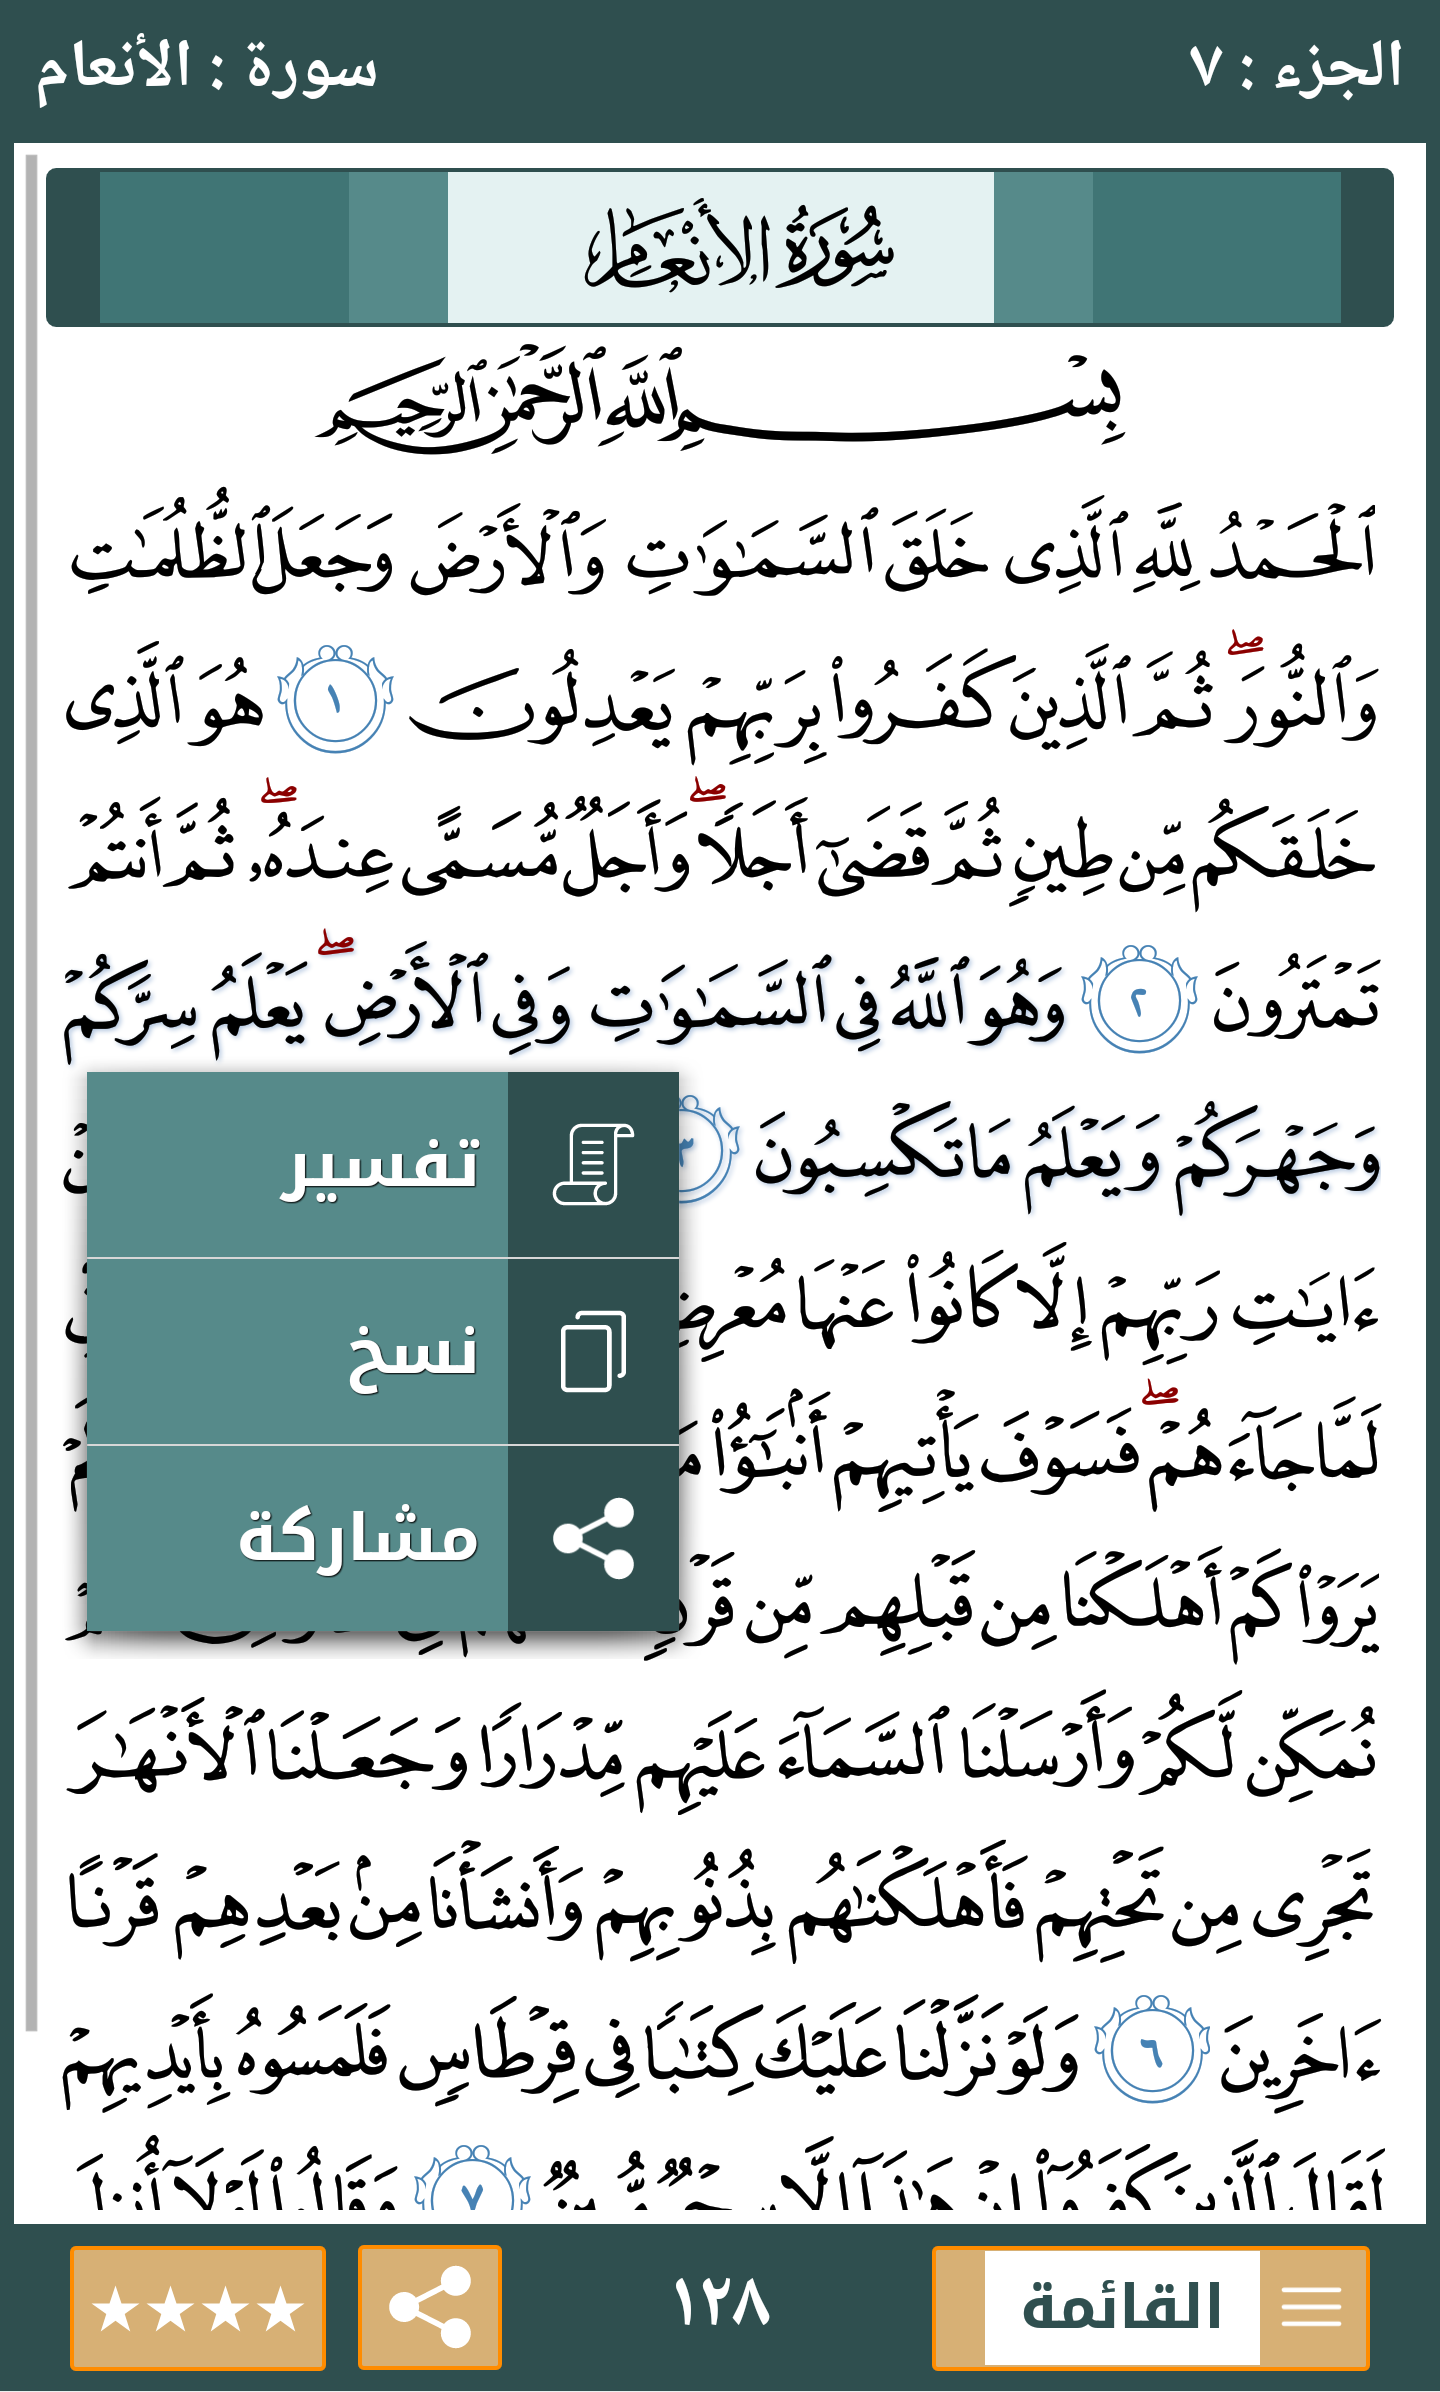 الجزء : ٧
سورة : الأنعام
سُورَةُ الأَنْعَامِ
بِسْمِ ٱللَّهِ ٱلرَّحْمَٰنِ ٱلرَّحِيمِ
ٱلْحَمْدُ لِلَّهِ ٱلَّذِى خَلَقَ ٱلسَّمَٰوَٰتِ وَٱلْأَرْضَ وَجَعَلَ ٱلظُّلُمَٰتِ
وَٱلنُّورَ ۖ ثُمَّ ٱلَّذِينَ كَفَرُوا۟ بِرَبِّهِمْ يَعْدِلُونَ ١ هُوَ ٱلَّذِى
خَلَقَكُم مِّن طِينٍ ثُمَّ قَضَىٰٓ أَجَلًا ۖ وَأَجَلٌ مُّسَمًّى عِندَهُۥ ۖ ثُمَّ أَنتُمْ
تَمْتَرُونَ ٢ وَهُوَ ٱللَّهُ فِى ٱلسَّمَٰوَٰتِ وَفِى ٱلْأَرْضِ ۖ يَعْلَمُ سِرَّكُمْ
وَجَهْرَكُمْ وَيَعْلَمُ مَا تَكْسِبُونَ ٣
ءَايَٰتِ رَبِّهِمْ إِلَّا كَانُوا۟ عَنْهَا
لَمَّا جَآءَهُمْ ۖ فَسَوْفَ يَأْتِيهِمْ أَنۢبَٰٓؤُا۟
يَرَوْا۟ كَمْ أَهْلَكْنَا مِن قَبْلِهِم مِّن قَرْنٍ
نُمَكِّن لَّكُمْ وَأَرْسَلْنَا ٱلسَّمَآءَ عَلَيْهِم مِّدْرَارًا وَجَعَلْنَا ٱلْأَنْهَٰرَ
تَجْرِى مِن تَحْتِهِمْ فَأَهْلَكْنَٰهُم بِذُنُوبِهِمْ وَأَنشَأْنَا مِنۢ بَعْدِهِمْ قَرْنًا
ءَاخَرِينَ ٦ وَلَوْ نَزَّلْنَا عَلَيْكَ كِتَٰبًا فِى قِرْطَاسٍ فَلَمَسُوهُ بِأَيْدِيهِمْ
لَقَالَ ٱلَّذِينَ كَفَرُوٓا۟ إِنْ هَٰذَآ إِلَّا سِحْرٌ مُّبِينٌ ٧ وَقَالُوا۟ لَوْلَآ أُنزِلَ
تفسير
نسخ
مشاركة
القائمة
١٢٨